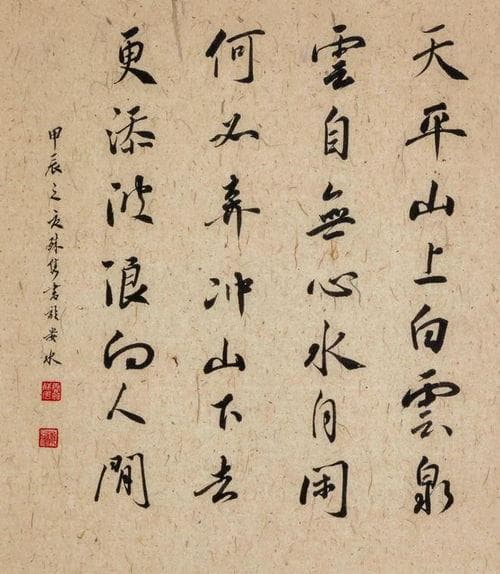 天平山上白雲泉
雲自無心水自閑
何必奔冲山下去
更添波浪向人間
甲辰之夏書於水